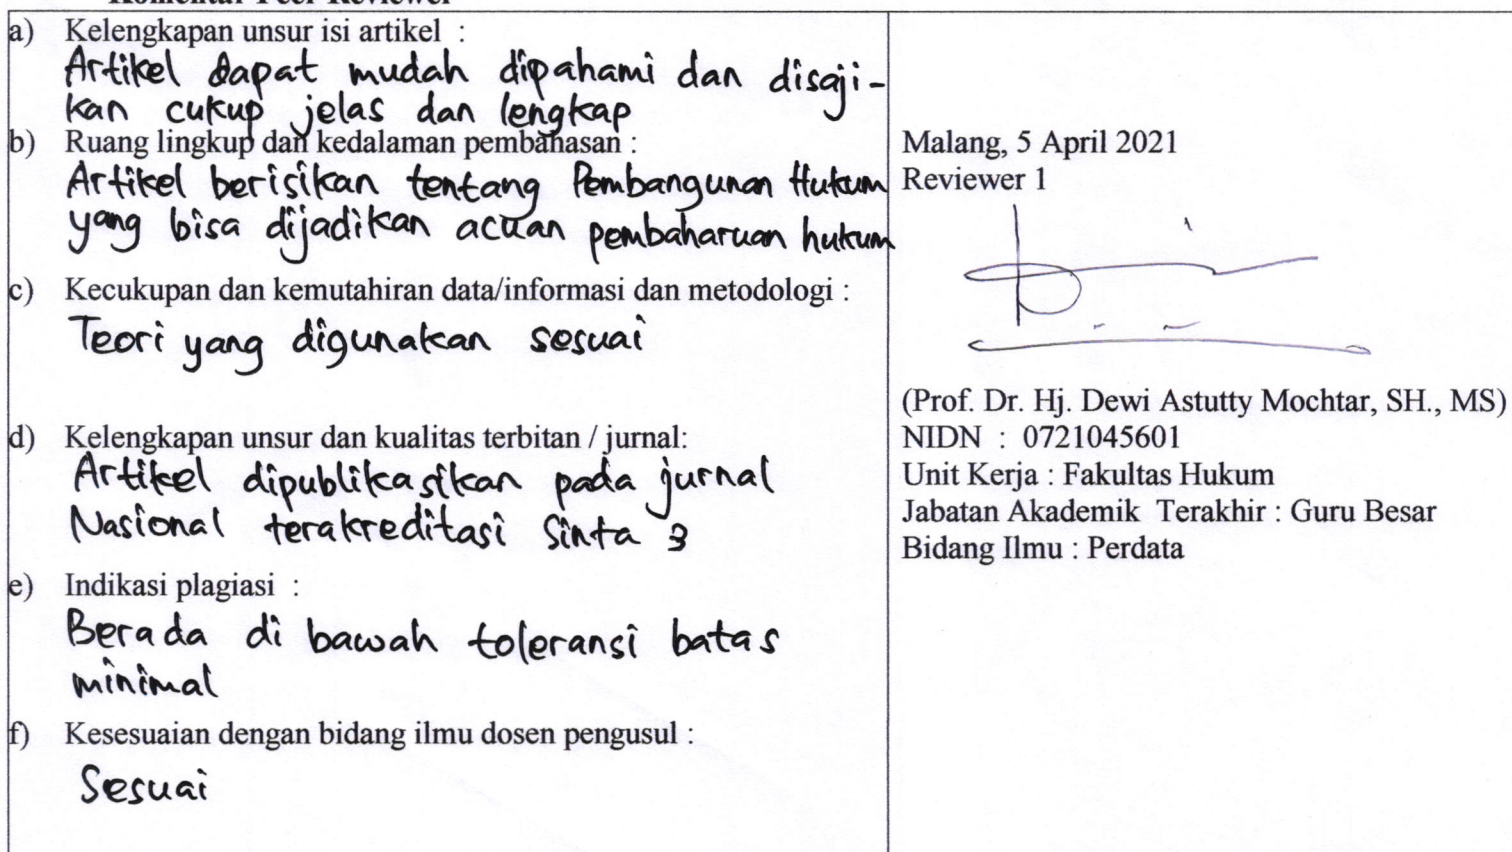 Komentar Peer Reviewer
a) Kelengkapan unsur isi artikel :
Artikel dapat mudah dipahami dan disaji-
kan cukup jelas dan lengkap
b) Ruang lingkup dan kedalaman pembahasan :
Artikel berisikan tentang Pembangunan Hukum
yang bisa dijadikan acuan pembaharuan hukum
c) Kecukupan dan kemutahiran data/informasi dan metodologi :
Teori yang digunakan sesuai
d) Kelengkapan unsur dan kualitas terbitan / jurnal:
Artikel dipublikasikan pada jurnal
Nasional terakreditasi Sinta 3
e) Indikasi plagiasi :
Berada di bawah toleransi batas
minimal
f) Kesesuaian dengan bidang ilmu dosen pengusul :
Sesuai
Malang, 5 April 2021
Reviewer 1
(Prof. Dr. Hj. Dewi Astutty Mochtar, SH., MS)
NIDN : 0721045601
Unit Kerja : Fakultas Hukum
Jabatan Akademik Terakhir : Guru Besar
Bidang Ilmu : Perdata